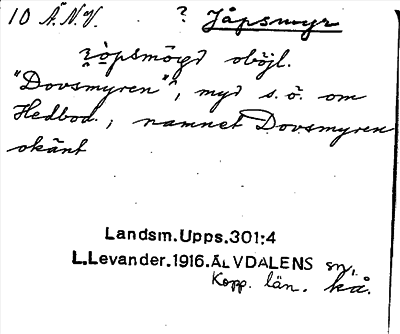 10 Ä.N.V. ? Jåpsmyr
ʔòpsmöɡd oböjl.
"Dovsmyren", myd s.ö. om
Hedbod.; namnet Dovsmyren
okänt
Landsm.Upps.301:4
L.Levander.1916.ÄLVDALENS sn,
Kopp. län. kå.